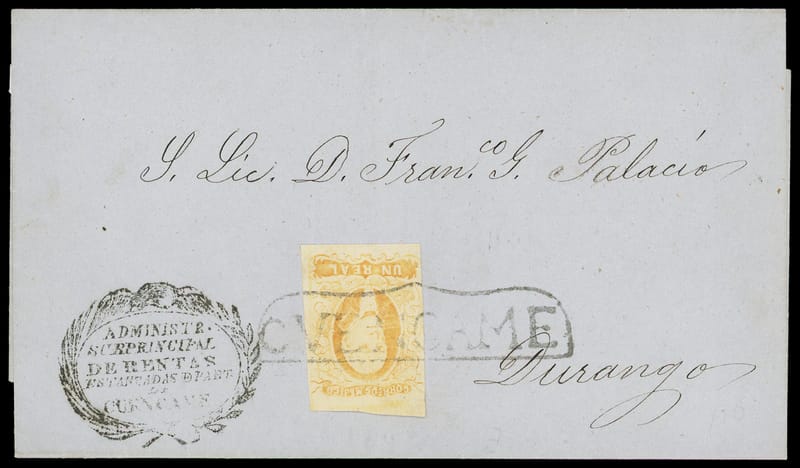 S. Lic. D. Fran.co G. Palacio
UN REAL
CORREOS MEJICO
CVENCAME
Durango
ADMINISTR.
PRINCIPAL
DE RENTAS
ESTANCADAS